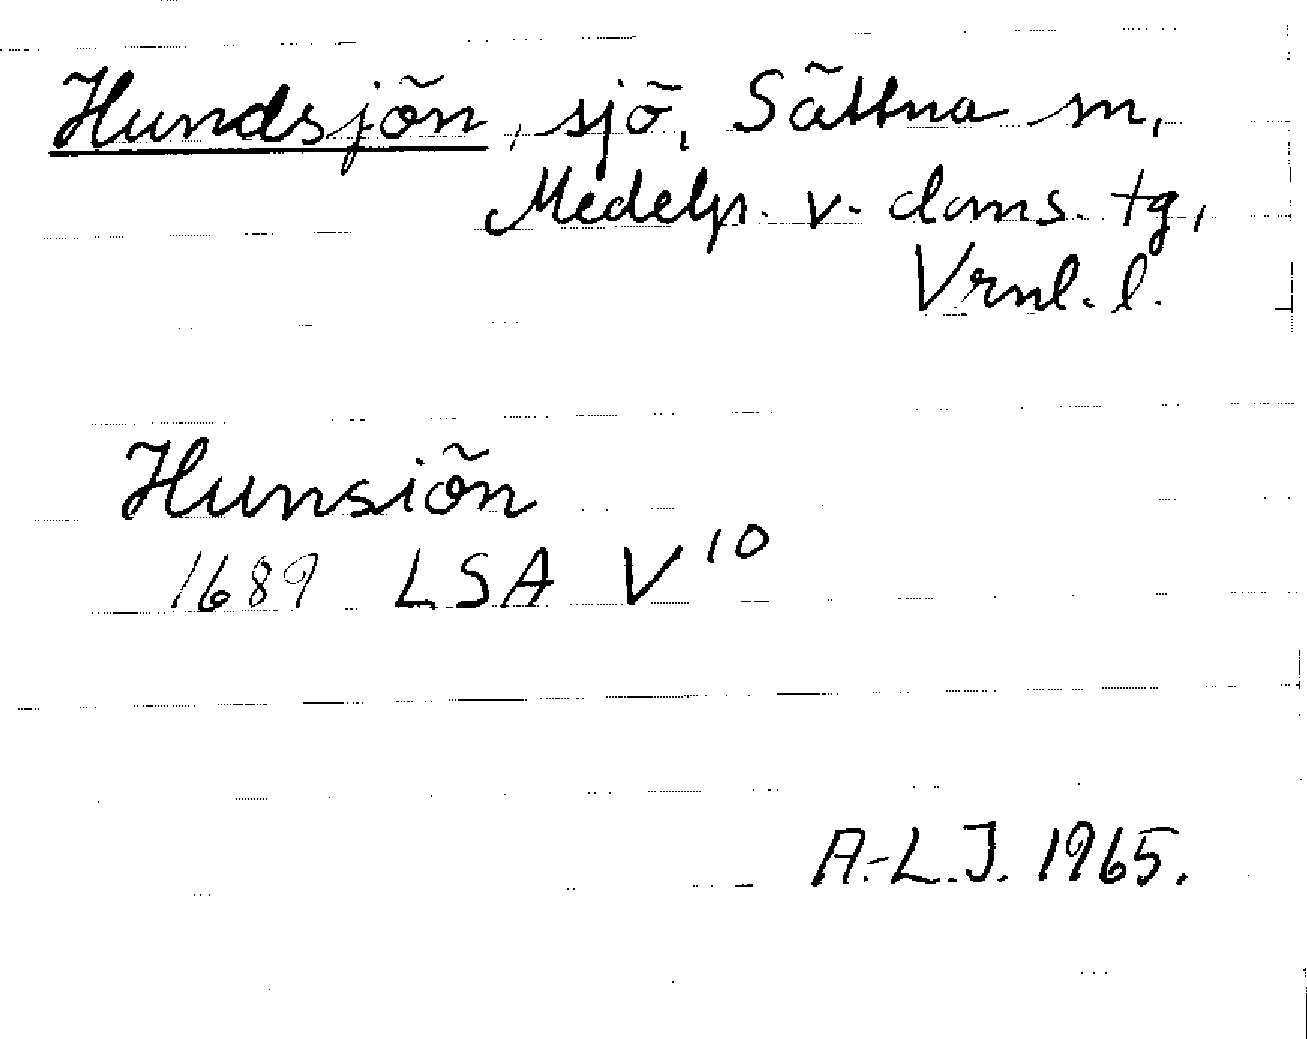 Hundsjön, sjö, Sättna sn,
Medelp. v. doms. tg,
Vrnl. l.
Hunsiön
1689 LSA V¹⁰
A.-L.J. 1965.